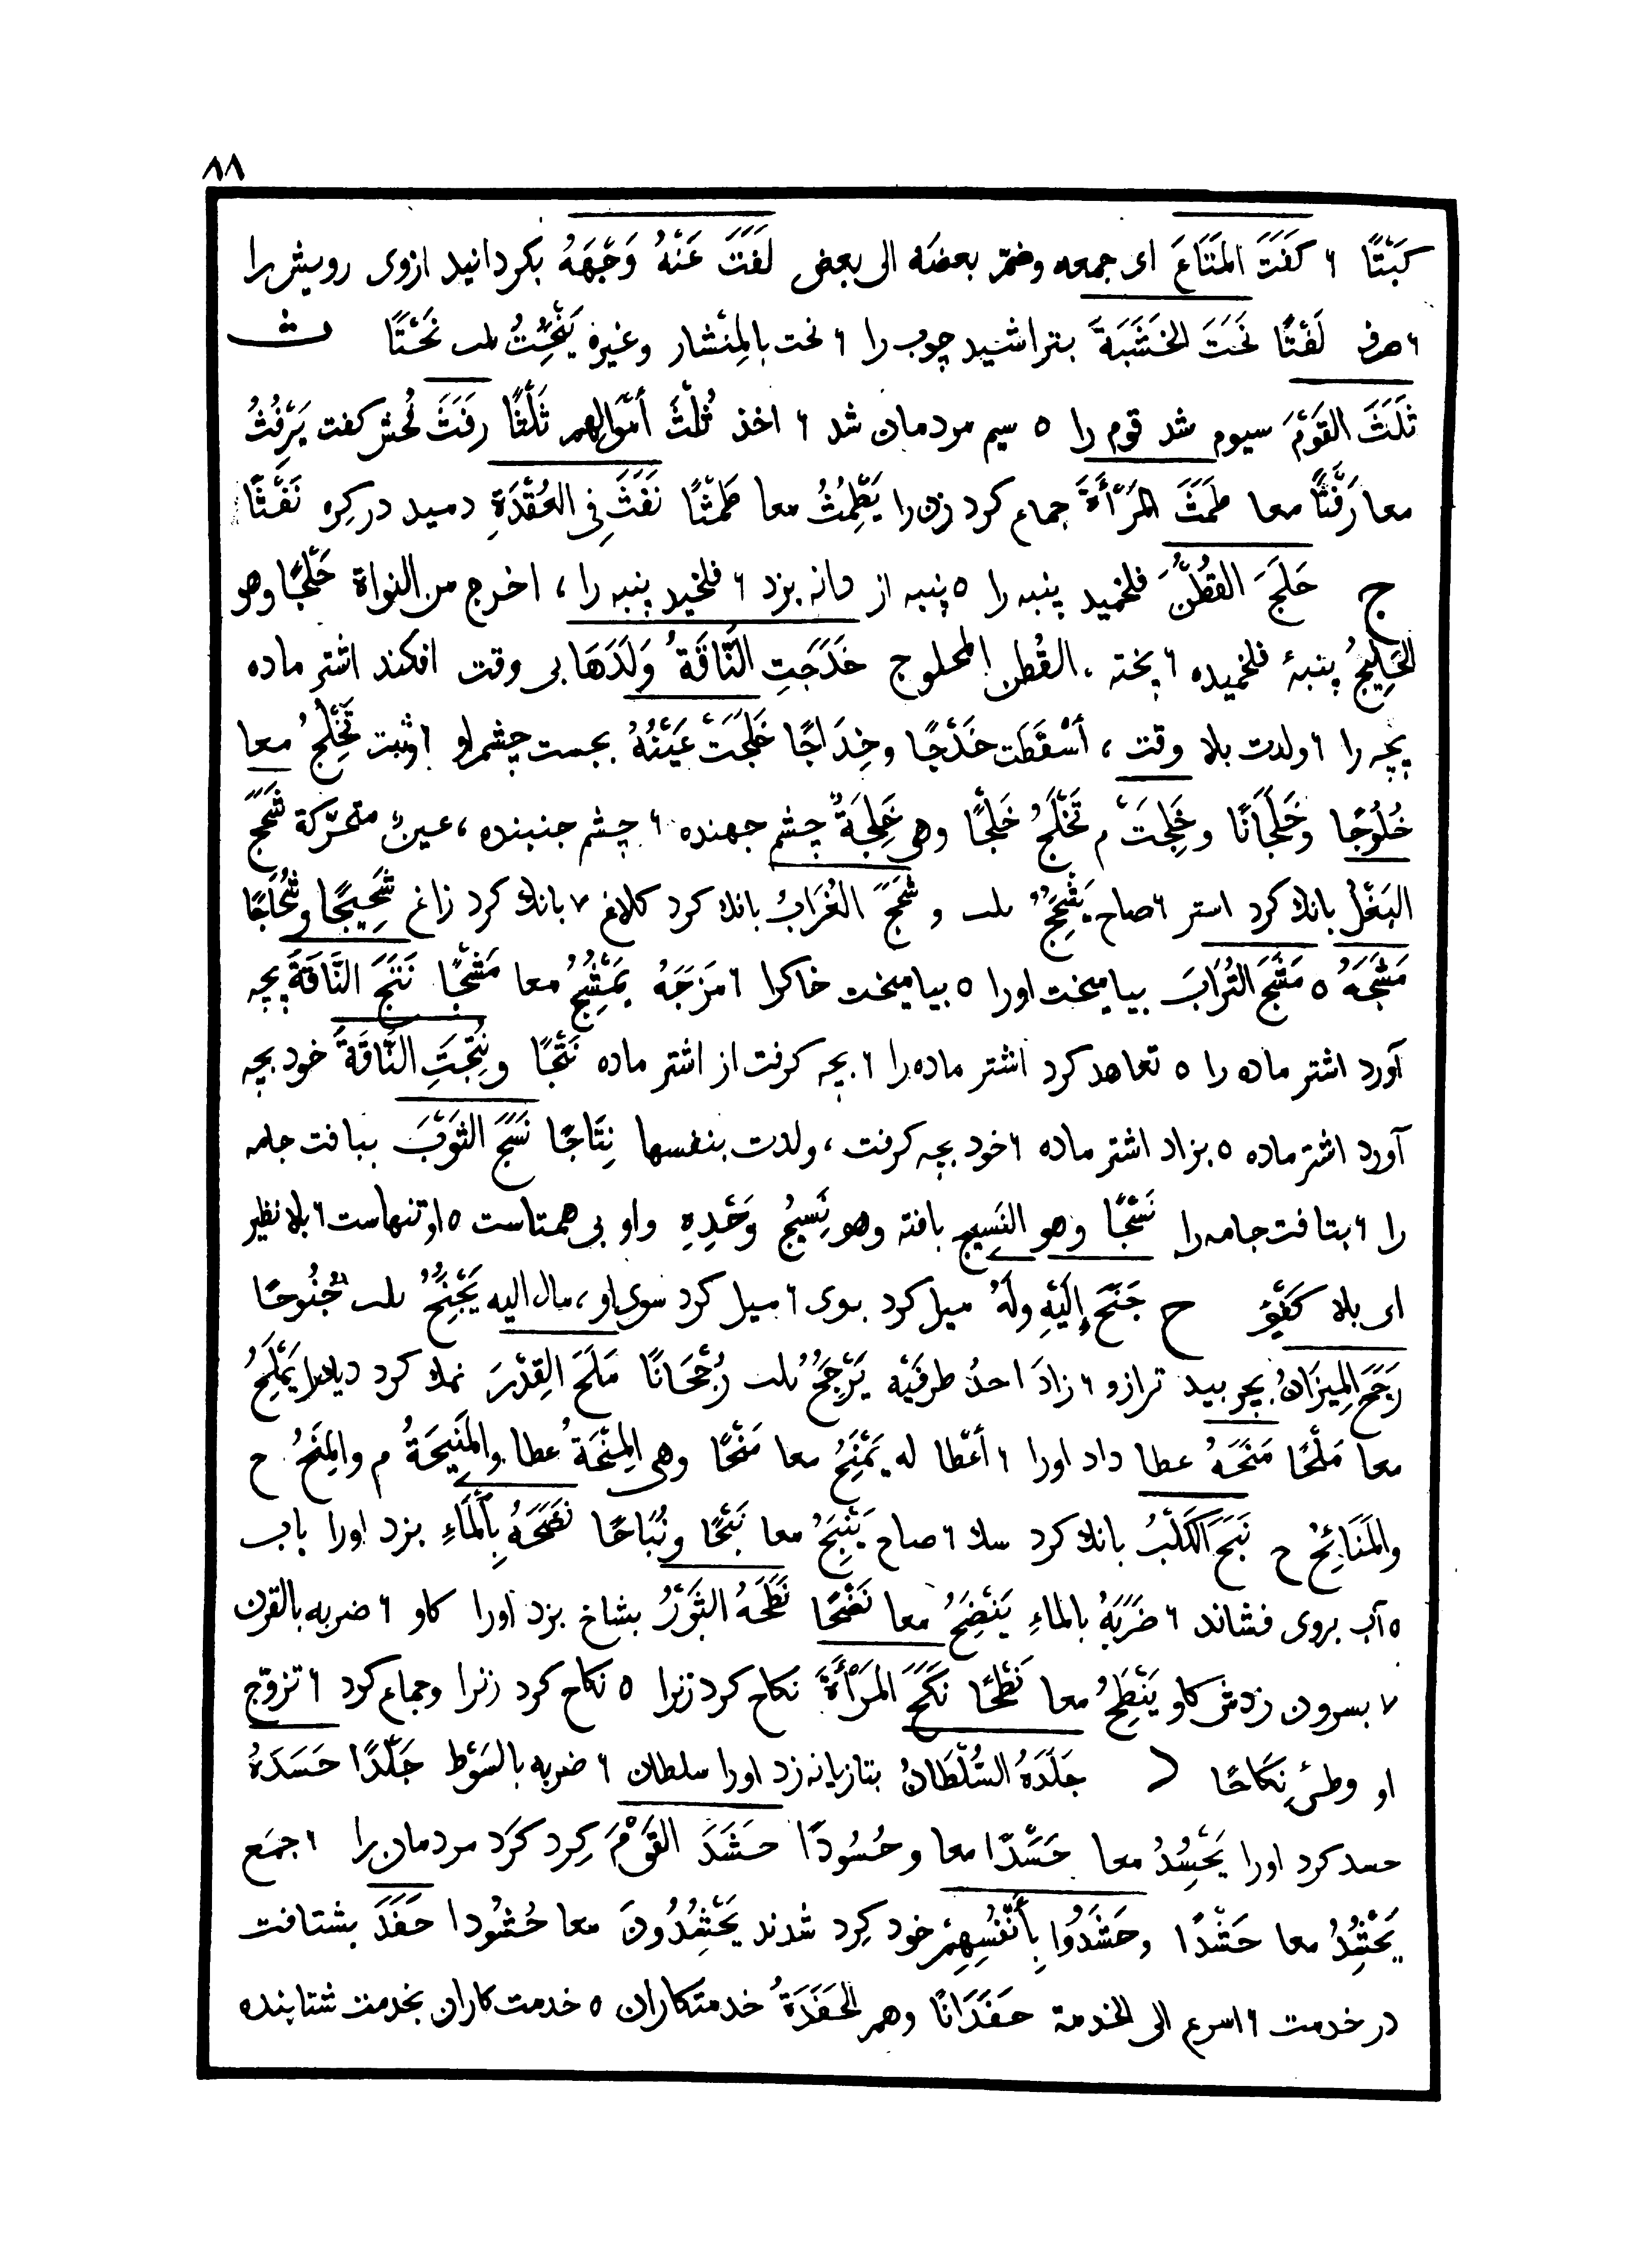 ٨٨
كَبْتًا ٦ كَفَتَ المَتَاعَ اى جمعه وضمّ بعضَه الى بعض لَفَتَ عَنْهُ وَجْهَهُ بكردانيد ازوى رويش را
٦ صرف لَفْتًا نَحَتَ الخَشَبَةَ بتراشيد چوب را ٦ نحت بالمِنْشار وغيره يَنْحِتُ ىلٮ نَحْتًا ث
ثَلَثَ القَوْمَ سيوم شد قوم را ٥ سيم مردمان شد ٦ اخذ ثُلْثَ أمْوالِهم ثَلْثًا رَفَثَ فُحش كفت يَرْفُثُ
معا رَفْثًا معا طَمَثَ المَرْأَةَ جماع كرد زن را يَطْمِثُ معا طَمْثًا نَفَثَ فِى العُقْدَةِ دميد در كِره نَفْثًا
ج حَلَجَ القُطْنَ فلخميد پنبه را ٥ پنبه از دانه بزد ٦ فلخيد پنبه را ، اخرج من النواة حَلْجًا وهو
الحَلِيجُ پنبۀ فلخميده ٦ پخته ، القُطن المحلوج خَدَجَتِ النَّاقَةُ وَلَدَهَا بى وقت افكند اشتر ماده
بچه را ٦ ولدت بلا وقت ، أَسْقَطَت خَدْجًا وخِدَاجًا خَلَجَتْ عَيْنُهُ بجست چشم او ٦ وثبت تَخْلِجُ معا
خُلُوجًا وخَلَجَانًا وخَلِجَتْ م تَخْلَجُ خَلَجًا وهى خَلِجَةٌ چشم جهنده ٦ چشم جنبنده ، عينٌ متحرّكة شَحَجَ
البَغْلُ بانك كرد استر ٦ صاح يَشْحِجُ ىلٮ و شَحَجَ الغُرَابُ بانك كرد كلاغ ٧ بانك كرد زاغ شَحِيجًا وشُحَاجًا
مَشَجَهُ ٥ مَشَجَ التُّرَابَ بياميخت اورا ٥ بياميخت خاكرا ٦ مَزَجَهُ يَمْشُجُ معا مَشْجًا نَتَجَ النَّاقَةَ بچه
آورد اشتر ماده را ٥ تعاهد كرد اشتر ماده را ٦ بچه كرفت از اشتر ماده نَتْجًا ونُتِجَتِ النَّاقَةُ خود بچه
آورد اشتر ماده ٥ بزاد اشتر ماده ٦ خود بچه كرفت ، ولدت بنفسها نِتَاجًا نَسَجَ الثَوْبَ ببافت جامه
را ٦ بتافت جامه را نَسْجًا وهو النَسِيج بافته وهو نَسِيجُ وَحْدِهِ واو بى همتاست ٥ او تنهاست ٦ بلا نظير
اى بلا كَفْؤٍ ح جَنَحَ إِلَيْهِ ولَهُ ميل كرد بوى ٦ ميل كرد سوى او ، مال اليه يَجْنِحُ ىلٮ جُنُوحًا
رَجَحَ المِيزَانُ بچربيد ترازو ٦ زادَ احدُ طرفَيْه يَرْجِحُ ىلٮ رُجْحَانًا مَلَحَ القِدْرَ نمك كرد ديك را يَمْلِحُ
معا مَلْحًا مَنَحَهُ عطا داد اورا ٦ أَعْطا له يَمْنِحُ معا مَنْحًا وهى المِنْحَةُ عطا والمَنِيحَةُ م والمِنَحُ ح
والمَنَائِحُ ح نَبَحَ الكَلْبُ بانك كرد سك ٦ صاح يَنْبِحُ معا نَبْحًا ونُبَاحًا نَضَحَهُ بِالْمَاءِ بزد اورا باب
٥ آب بروى فشاند ٦ ضَرَبَهُ بالماءِ يَنْضِحُ معا نَضْحًا نَطَحَهُ الثَوْرُ بشاخ بزد اورا كاو ٦ ضربه بالقرن
٧ بسرون زدش كاو يَنْطِحُ معا نَطْحًا نَكَحَ المَرْأَةَ نكاح كرد زنرا ٥ نكاح كرد زنرا وجماع كرد ٦ تزوّج
او وطئ نِكَاحًا د جَلَدَهُ السُّلْطَانُ بتازيانه زد اورا سلطان ٦ ضربه بالسَوْط جَلْدًا حَسَدَهُ
حسد كرد اورا يَحْسِدُ معا حَسَدًا معا وحُسُودًا حَشَدَ القَوْمَ كِرد كَرَد مردمان را ٦ جمَع
يَحْشِدُ معا حَشْدًا وحَشَدُوا بِأَنْفُسِهِمْ خود كِرد شدند يَحْشِدُونَ معا حُشُودا حَفَدَ بشتافت
در خدمت ٦ اسرع الى الخدمة حَفَدَانًا وهم الحَفَدَةُ خدمتكاران ٥ خدمت كاران بخدمت شتابنده